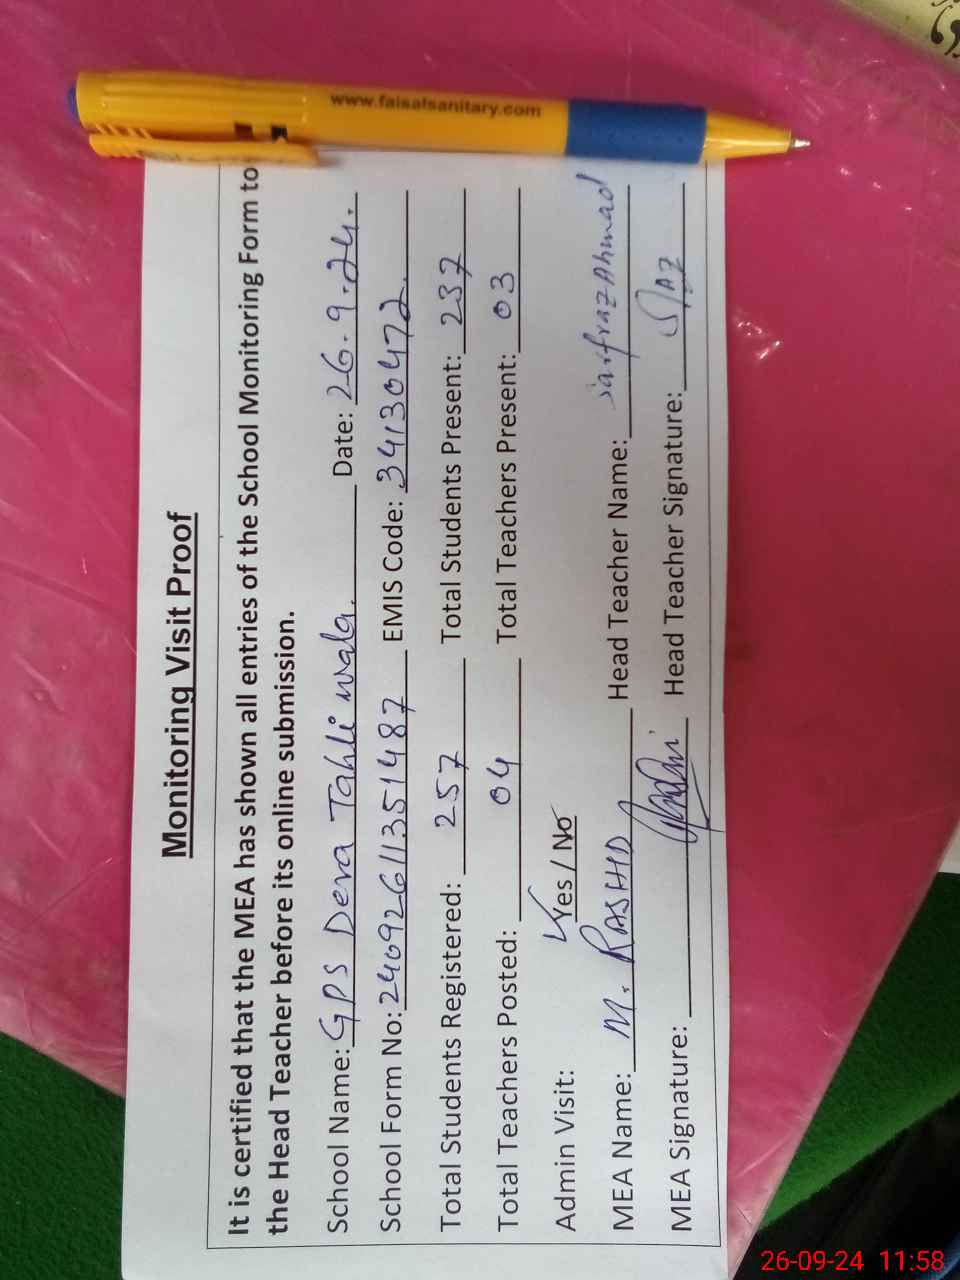 www.faisalsanitary.com
Monitoring Visit Proof
It is certified that the MEA has shown all entries of the School Monitoring Form to
the Head Teacher before its online submission.
School Name: GPS Dera Tahli wala. Date: 26.9.24.
School Form No: 24092611351487 EMIS Code: 34130472
Total Students Registered: 257 Total Students Present: 237
Total Teachers Posted: 04 Total Teachers Present: 03
Admin Visit: Yes / No
MEA Name: M. RASHID Head Teacher Name: sarfraz Ahmad
MEA Signature: Head Teacher Signature:
26-09-24 11:58